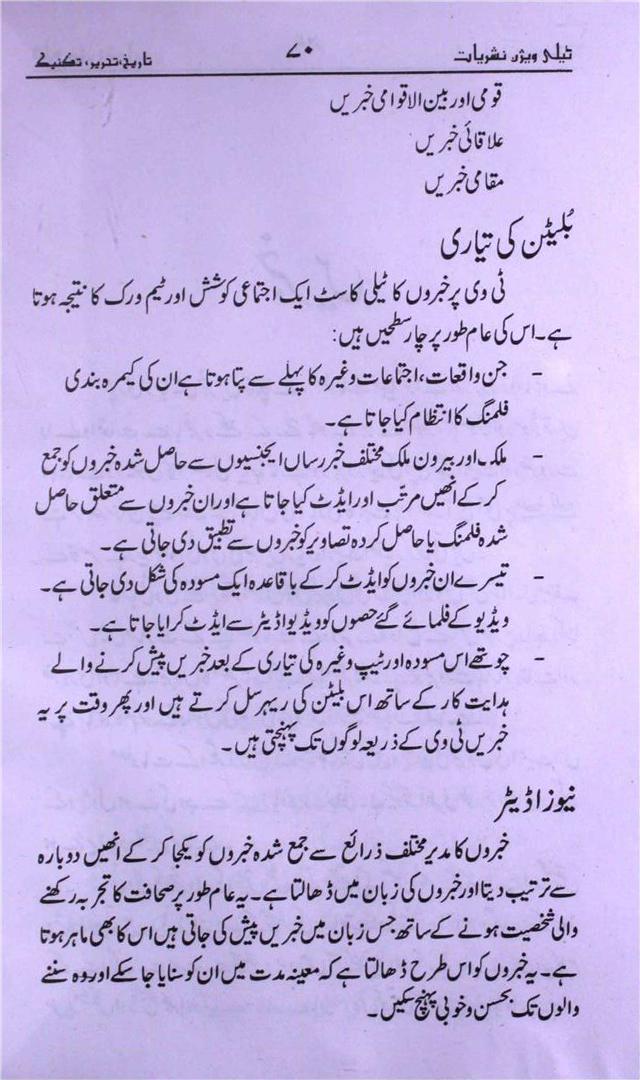 ٹیلی ویژن نشریات ۷۰ تاریخ، تحریر، تکنیک
قومی اور بین الاقوامی خبریں
علاقائی خبریں
مقامی خبریں
بُلیٹن کی تیاری
ٹی وی پر خبروں کا ٹیلی کاسٹ ایک اجتماعی کوشش اور ٹیم ورک کا نتیجہ ہوتا
ہے۔ اس کی عام طور پر چار سطحیں ہیں:
- جن واقعات، اجتماعات وغیرہ کا پہلے سے پتا ہوتا ہے ان کی کیمرہ بندی
فلمنگ کا انتظام کیا جاتا ہے۔
- ملک اور بیرون ملک مختلف خبر رساں ایجنسیوں سے حاصل شدہ خبروں کو جمع
کر کے انھیں مرتب اور ایڈٹ کیا جاتا ہے اور ان خبروں سے متعلق حاصل
شدہ فلمنگ یا حاصل کردہ تصاویر کو خبروں سے تطبیق دی جاتی ہے۔
- تیسرے ان خبروں کو ایڈٹ کر کے باقاعدہ ایک مسودہ کی شکل دی جاتی ہے۔
ویڈیو کے فلمائے گئے حصوں کو ویڈیو اڈیٹر سے ایڈٹ کرایا جاتا ہے۔
- چوتھے اس مسودہ اور ٹیپ وغیرہ کی تیاری کے بعد خبریں پیش کرنے والے
ہدایت کار کے ساتھ اس بلیٹن کی ریہرسل کرتے ہیں اور پھر وقت پر یہ
خبریں ٹی وی کے ذریعہ لوگوں تک پہنچتی ہیں۔
نیوز اڈیٹر
خبروں کا مدیر مختلف ذرائع سے جمع شدہ خبروں کو یکجا کر کے انھیں دوبارہ
سے ترتیب دیتا اور خبروں کی زبان میں ڈھالتا ہے۔ یہ عام طور پر صحافت کا تجربہ رکھنے
والی شخصیت ہونے کے ساتھ جس زبان میں خبریں پیش کی جاتی ہیں اس کا بھی ماہر ہوتا
ہے۔ یہ خبروں کو اس طرح ڈھالتا ہے کہ معینہ مدت میں ان کو سنایا جا سکے اور وہ سننے
والوں تک بحسن و خوبی پہنچ سکیں۔